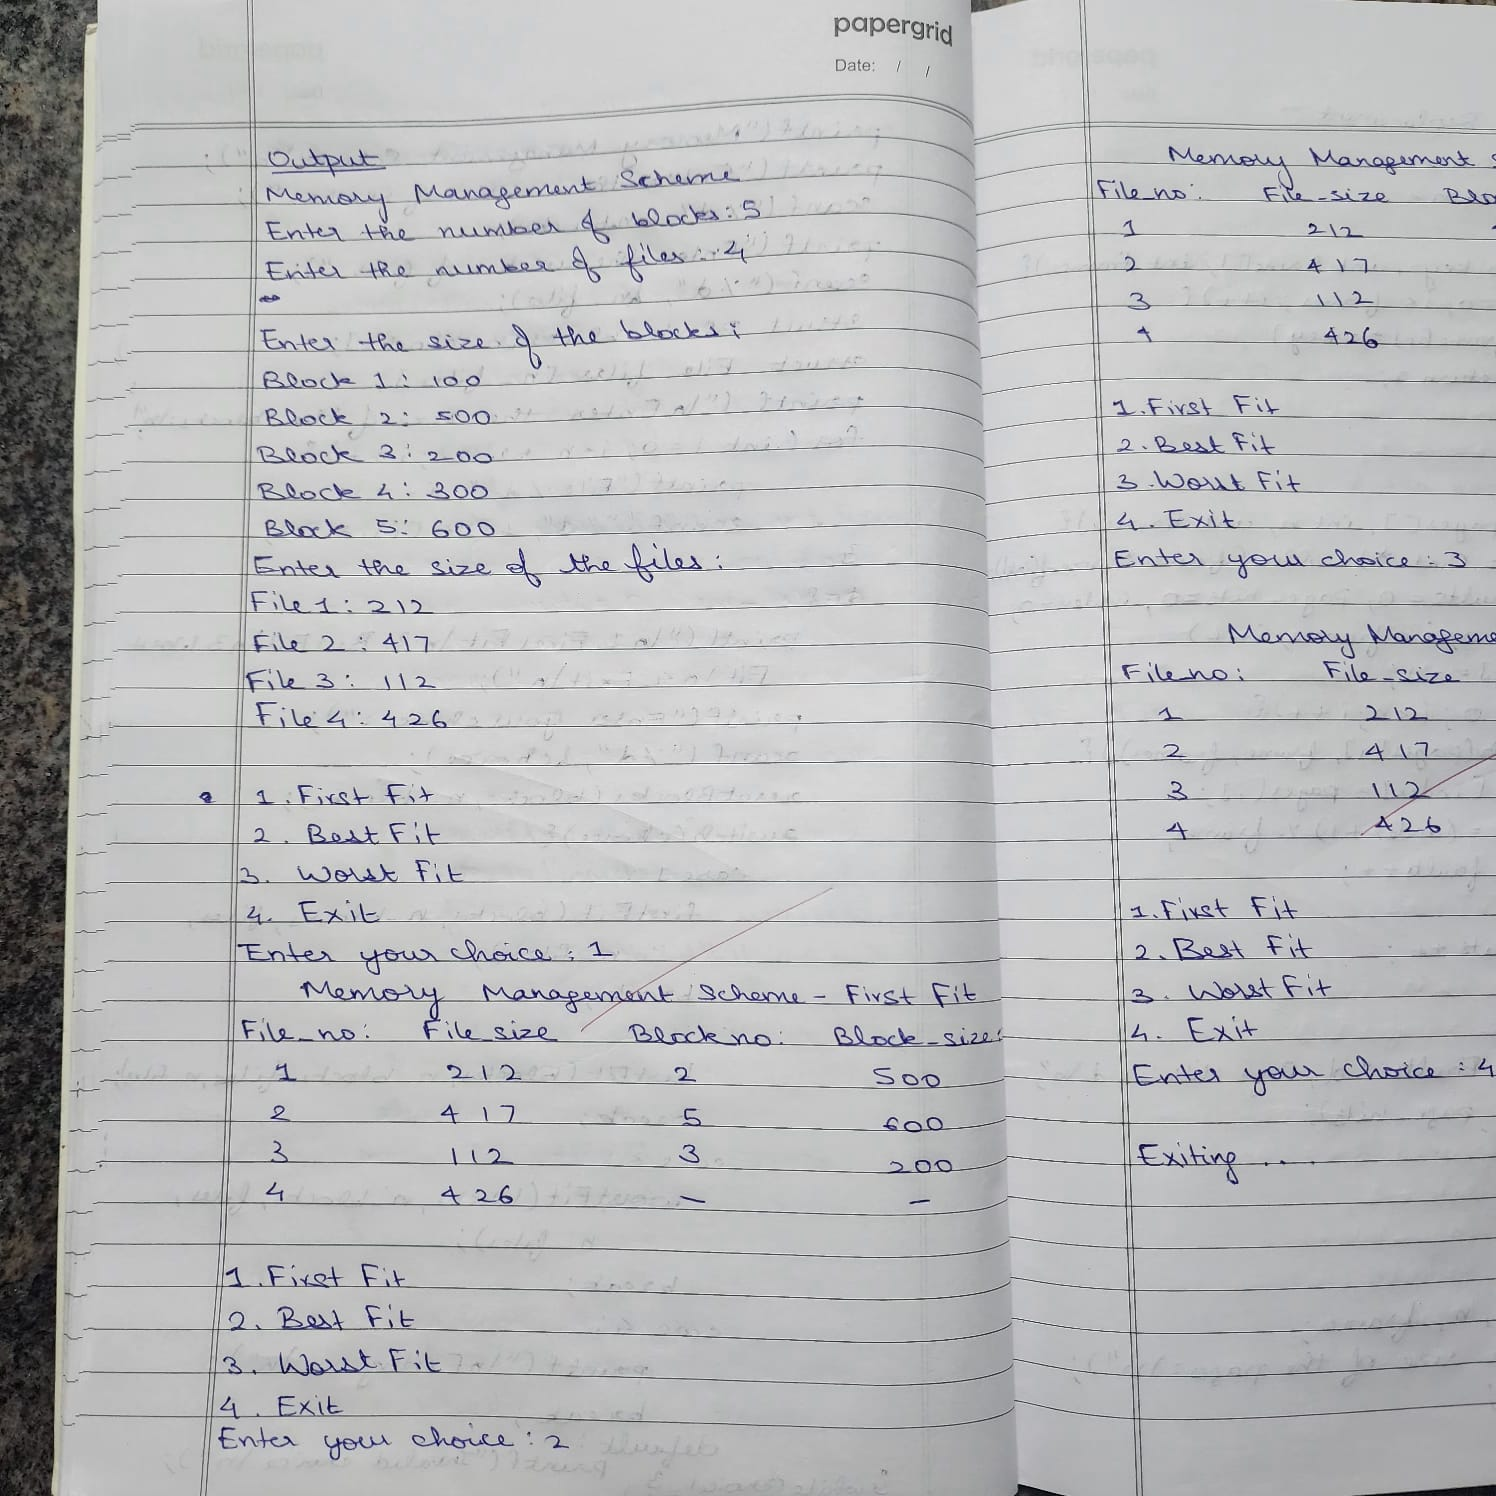 papergrid
Date: / /
Output
Memory Management Scheme
Enter the number of blocks: 5
Enter the number of files: 4
Enter the size of the blocks:
Block 1: 100
Block 2: 500
Block 3: 200
Block 4: 300
Block 5: 600
Enter the size of the files:
File 1: 212
File 2: 417
File 3: 112
File 4: 426
1. First Fit
2. Best Fit
3. Worst Fit
4. Exit
Enter your choice: 1
Memory Management Scheme - First Fit
File_no: File_size Block no: Block_size:
1 212 2 500
2 417 5 600
3 112 3 200
4 426 - -
1. First Fit
2. Best Fit
3. Worst Fit
4. Exit
Enter your choice: 2
Memory Management
File_no: File_size
1 212
2 417
3 112
4 426
1. First Fit
2. Best Fit
3. Worst Fit
4. Exit
Enter your choice: 3
Memory
File_no: File_size
1 212
2 417
3 112
4 426
1. First Fit
2. Best Fit
3. Worst Fit
4. Exit
Enter your choice: 4
Exiting....